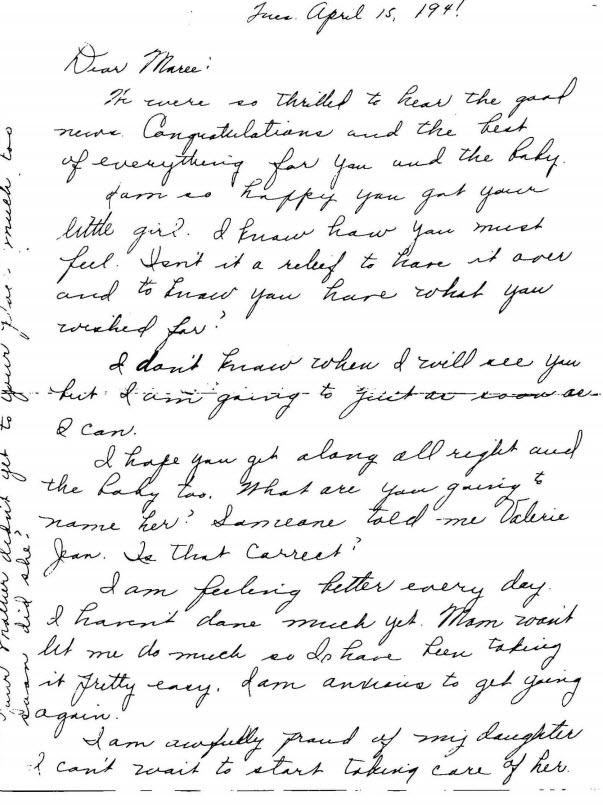 Tues. April 15, 1941
Dear Maree:
We were so thrilled to hear the good
news. Congratulations and the best
of everything for you and the baby.
I am so happy you got your
little girl. I know how you must
feel. Isn't it a relief to have it over
and to know you have what you
wished for?
I don't know when I will see you
but I am going to just as soon as
I can.
I hope you get along all right and
the baby too. What are you going to
name her? Someone told me Valerie
Jean. Is that correct?
I am feeling better every day.
I haven't done much yet. Mom won't
let me do much so I have been taking
it pretty easy. I am anxious to get going
again.
I am awfully proud of my daughter
I can't wait to start taking care of her.
Your Mother didn't get to your much too
soon did she?